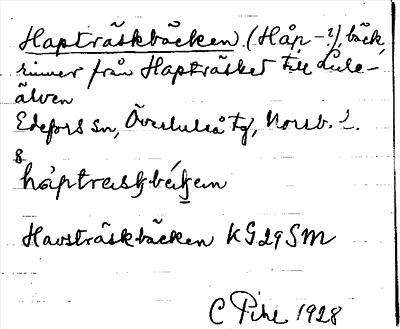 Hapträskbäcken (Håp-?), bäck,
rinner från Hapträsket till Lule-
älven
Edefors sn, Överluleå tg, Norrb. l.
Havsträskbäcken KG29SM
C Pihl 1928